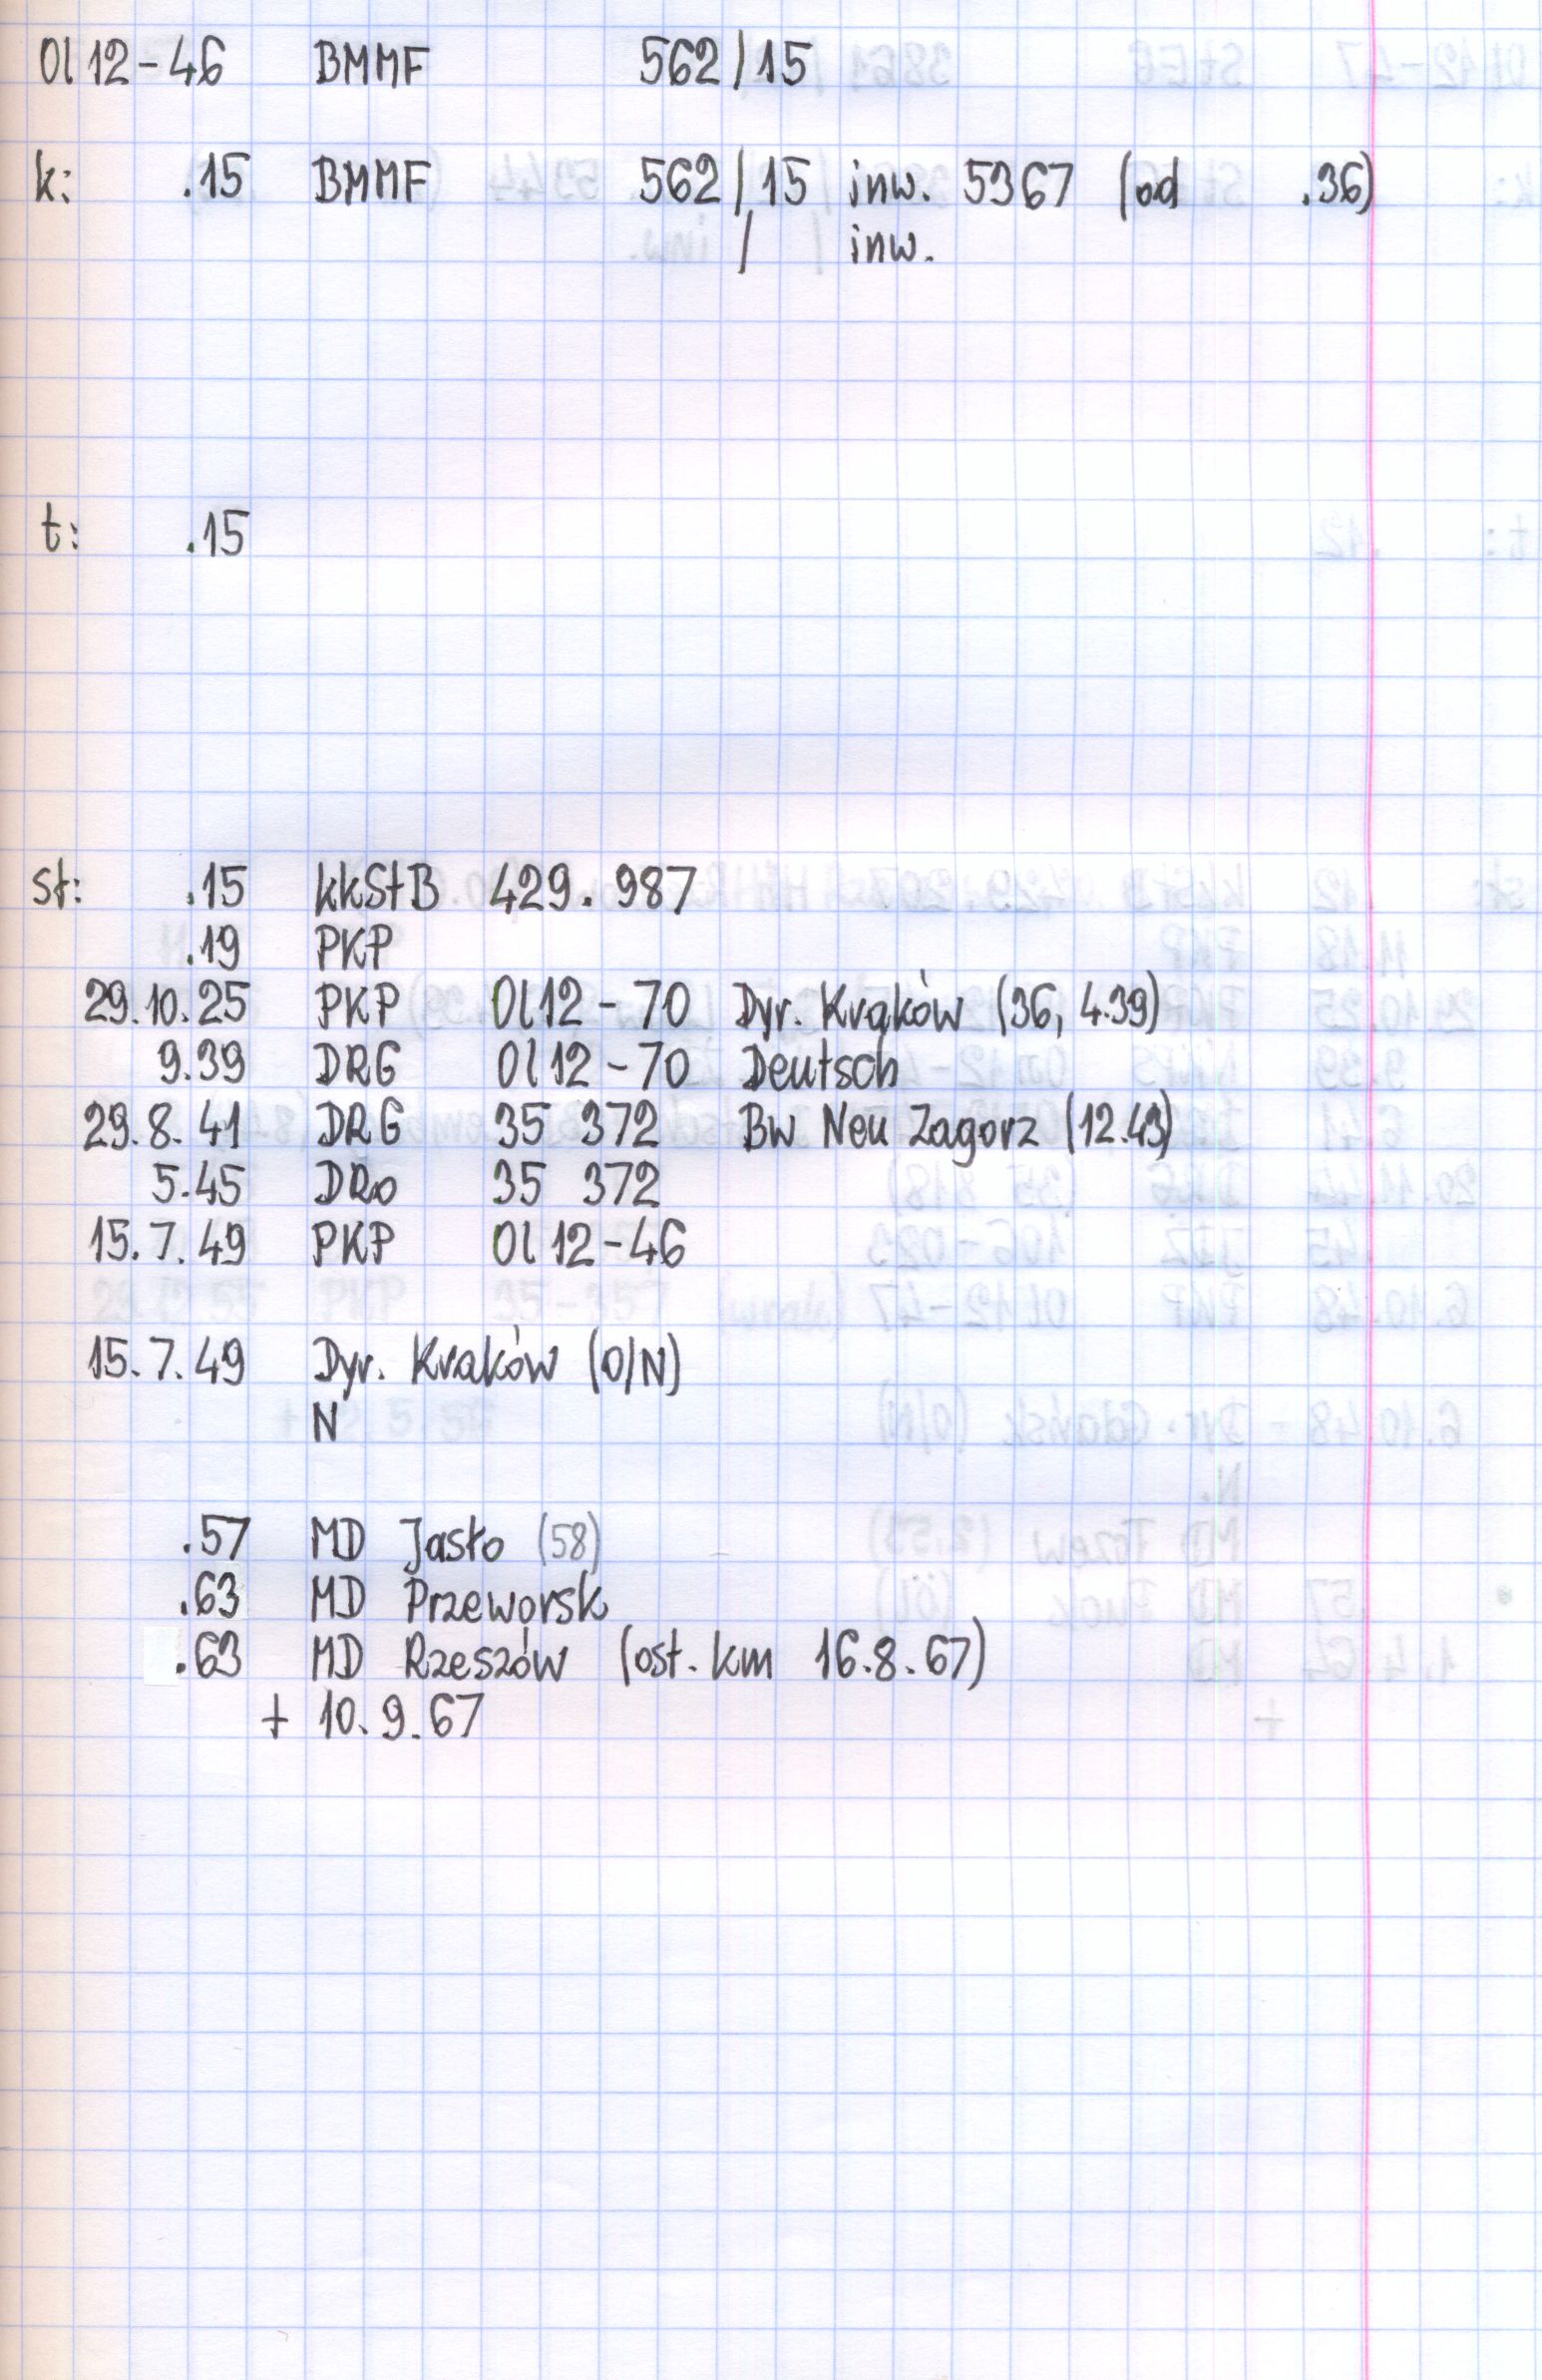 Ol12-46 BMMF 562/15
k: .15 BMMF 562/15 inw. 5367 (od .36)
/ inw.
t: .15
st: .15 kkStB 429.987
.19 PKP
29.10.25 PKP Ol12-70 Dyr. Kraków (36, 4.39)
9.39 DRG Ol12-70 Deutsch
29.8.41 DRG 35 372 Bw Neu Zagorz (12.43)
5.45 DRo 35 372
15.7.49 PKP Ol12-46
15.7.49 Dyr. Kraków (O/N)
N
.57 MD Jasło (58)
.63 MD Przeworsk
.63 MD Rzeszów (ost. km 16.8.67)
+ 10.9.67